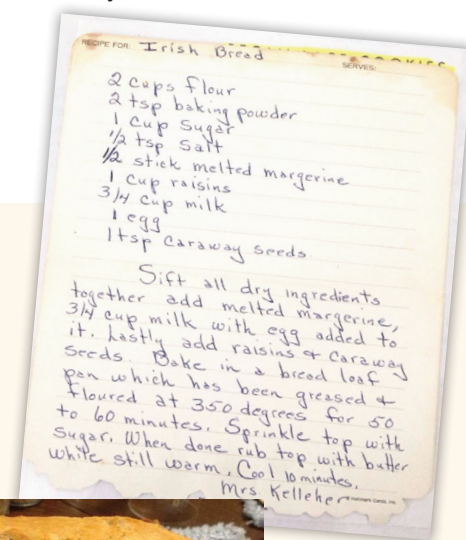 RECIPE FOR: Irish Bread
SERVES:
2 cups flour
2 tsp baking powder
1 cup Sugar
1/2 tsp Salt
1/2 stick melted margerine
1 cup raisins
3/4 cup milk
1 egg
1 tsp Caraway seeds
Sift all dry ingredients
together add melted margerine,
3/4 cup milk with egg added to
it. Lastly add raisins & Caraway
seeds. Bake in a bread loaf
pan which has been greased &
floured at 350 degrees for 50
to 60 minutes. Sprinkle top with
sugar. When done rub top with butter
while still warm. Cool 10 minutes.
Mrs. Kelleher